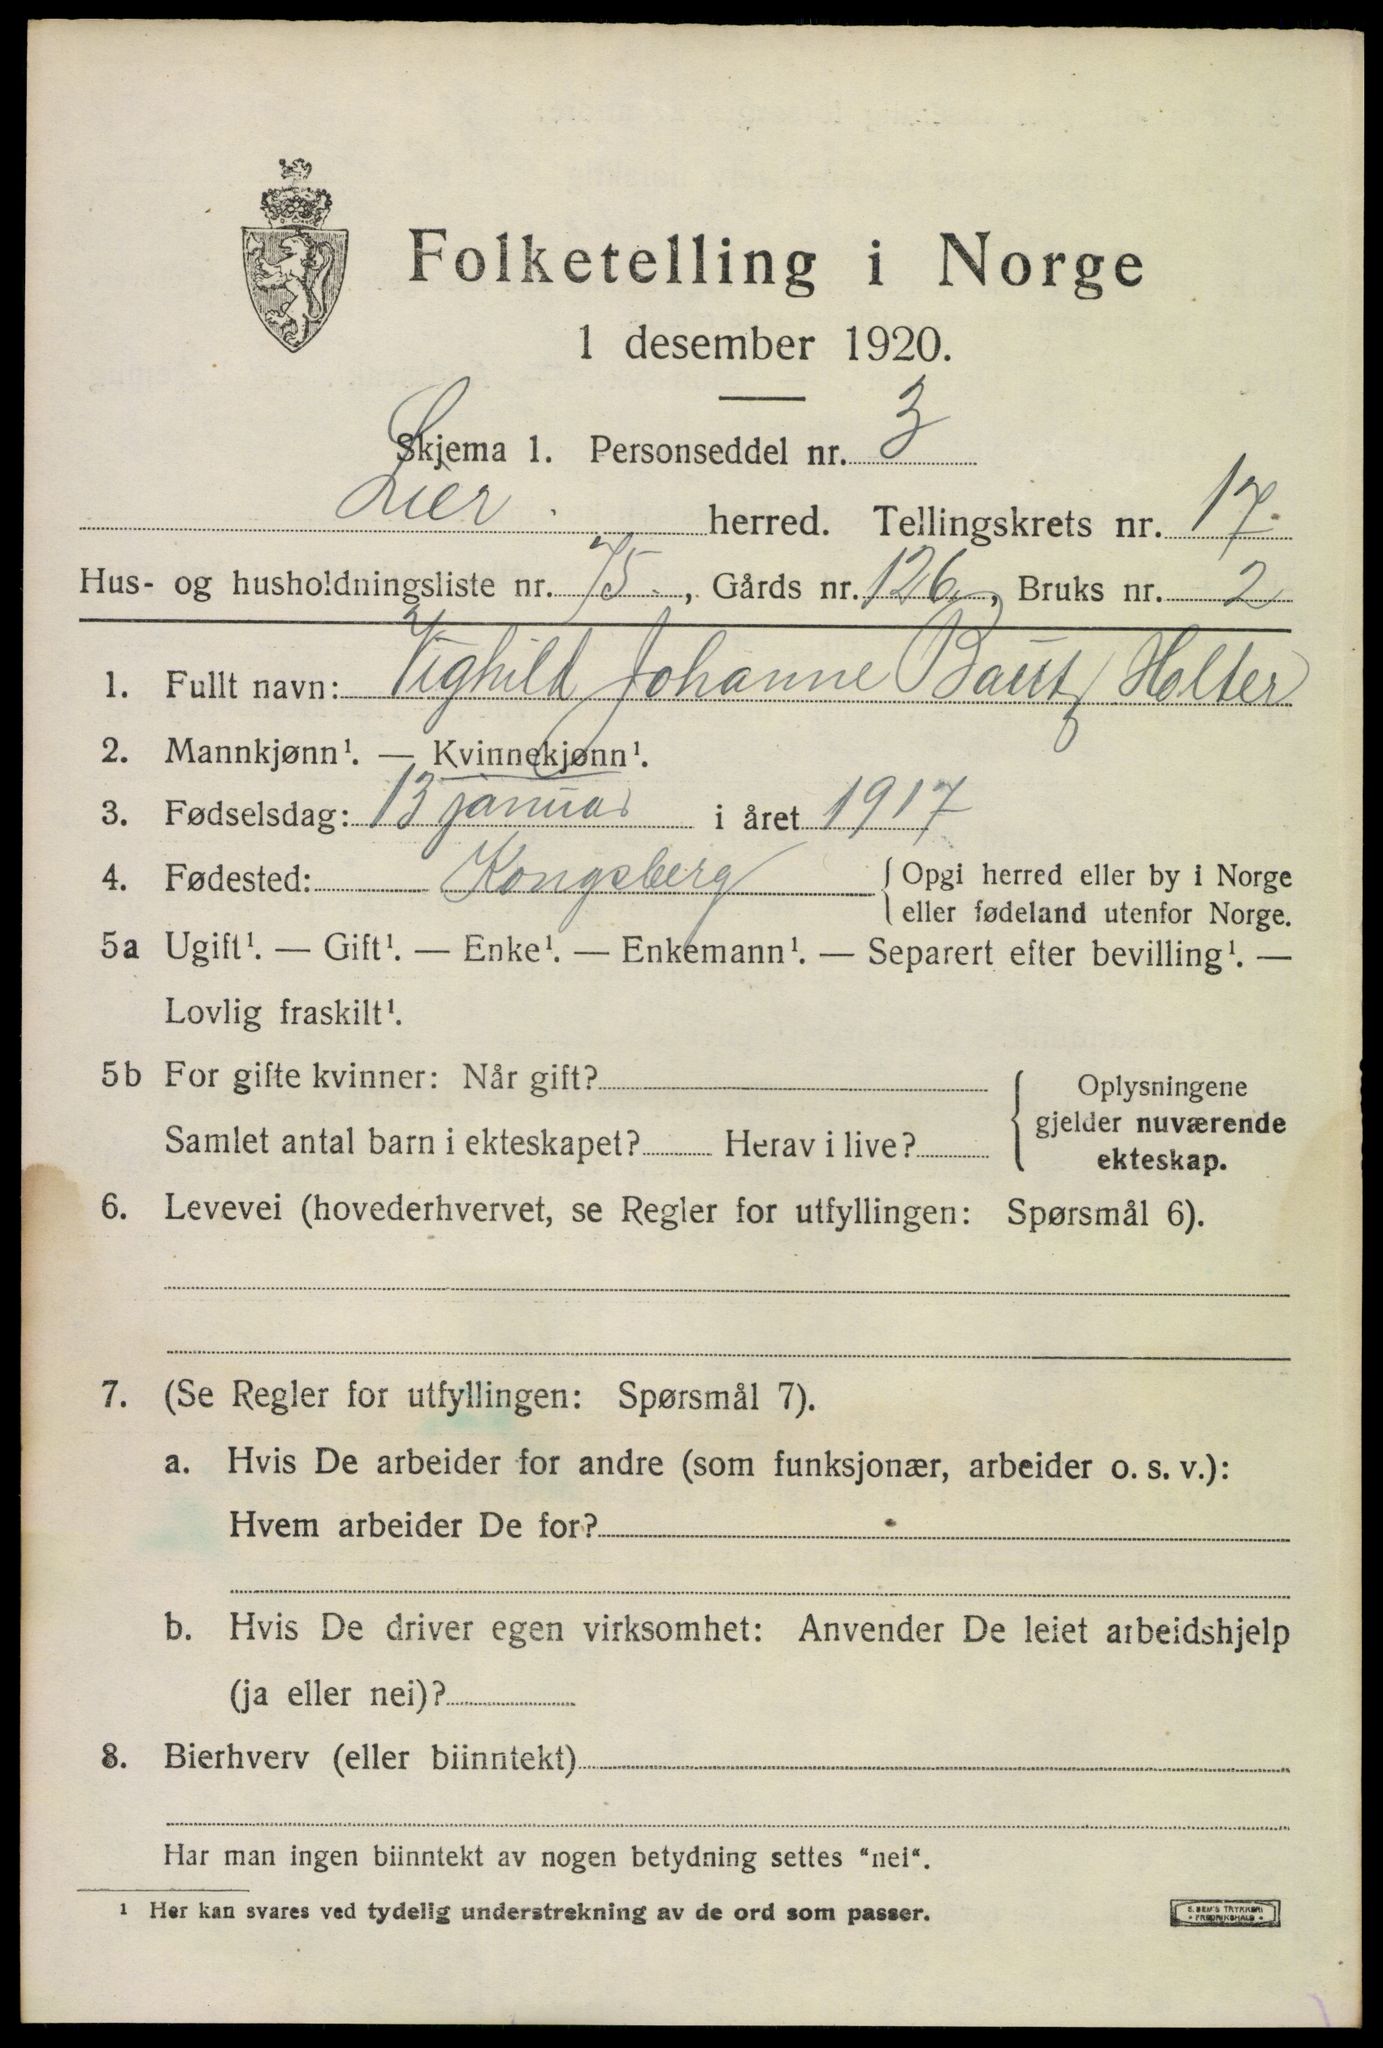 Folketelling i Norge
1 desember 1920.
Skjema 1. Personseddel nr. 3
Lier. herred. Tellingskrets nr. 17.
Hus- og husholdningsliste nr. 75., Gårds nr. 126, Bruks nr. 2
1. Fullt navn: Vighild Johanne Bautz Holter
2. Mannkjønn¹. — Kvinnekjønn¹.
3. Fødselsdag: 13 januar i året 1917
4. Fødested: Kongsberg { Opgi herred eller by i Norge
eller fødeland utenfor Norge.
5a Ugift¹. — Gift¹. — Enke¹. — Enkemann¹. — Separert efter bevilling¹. —
Lovlig fraskilt¹.
5b For gifte kvinner: Når gift?
Samlet antal barn i ekteskapet? Herav i live?
{ Oplysningene
gjelder nuværende
ekteskap.
6. Levevei (hovederhvervet, se Regler for utfyllingen: Spørsmål 6).
7. (Se Regler for utfyllingen: Spørsmål 7).
a. Hvis De arbeider for andre (som funksjonær, arbeider o. s. v.):
Hvem arbeider De for?
b. Hvis De driver egen virksomhet: Anvender De leiet arbeidshjelp
(ja eller nei)?
8. Bierhverv (eller biinntekt)
Har man ingen biinntekt av nogen betydning settes "nei".
¹ Her kan svares ved tydelig understrekning av de ord som passer.
E. SEM'S TRYKKERI
• FREDRIKSHALD •